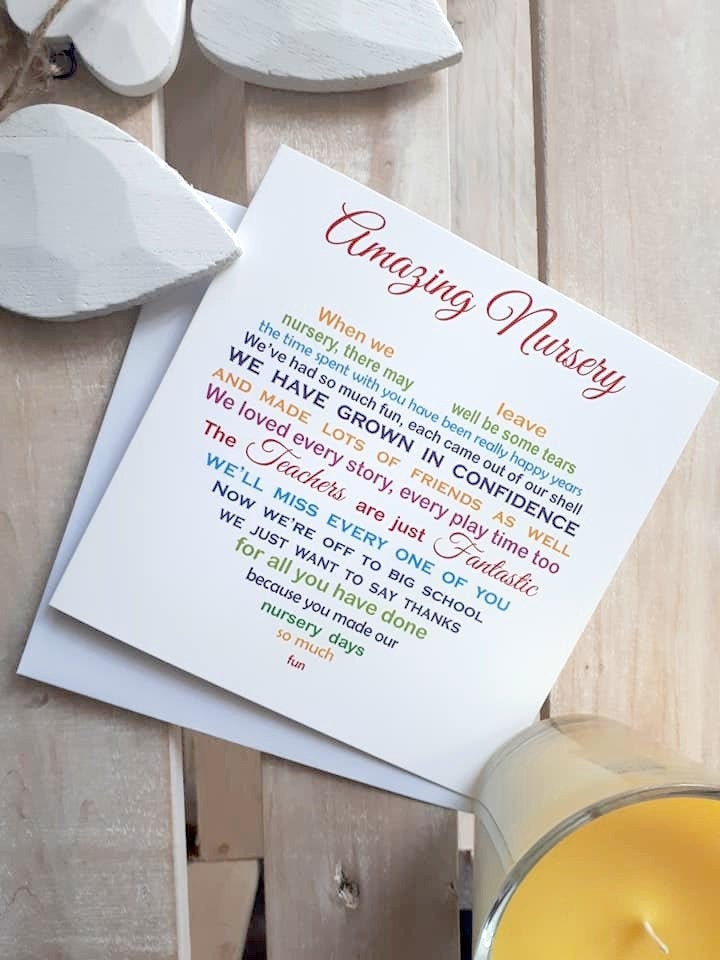 Amazing Nursery
When we leave
nursery, there may well be some tears
the time spent with you have been really happy years
We've had so much fun, each came out of our shell
WE HAVE GROWN IN CONFIDENCE
AND MADE LOTS OF FRIENDS AS WELL
We loved every story, every play time too
The Teachers are just Fantastic
WE'LL MISS EVERY ONE OF YOU
NOW WE'RE OFF TO BIG SCHOOL
WE JUST WANT TO SAY THANKS
for all you have done
because you made our
nursery days
so much
fun